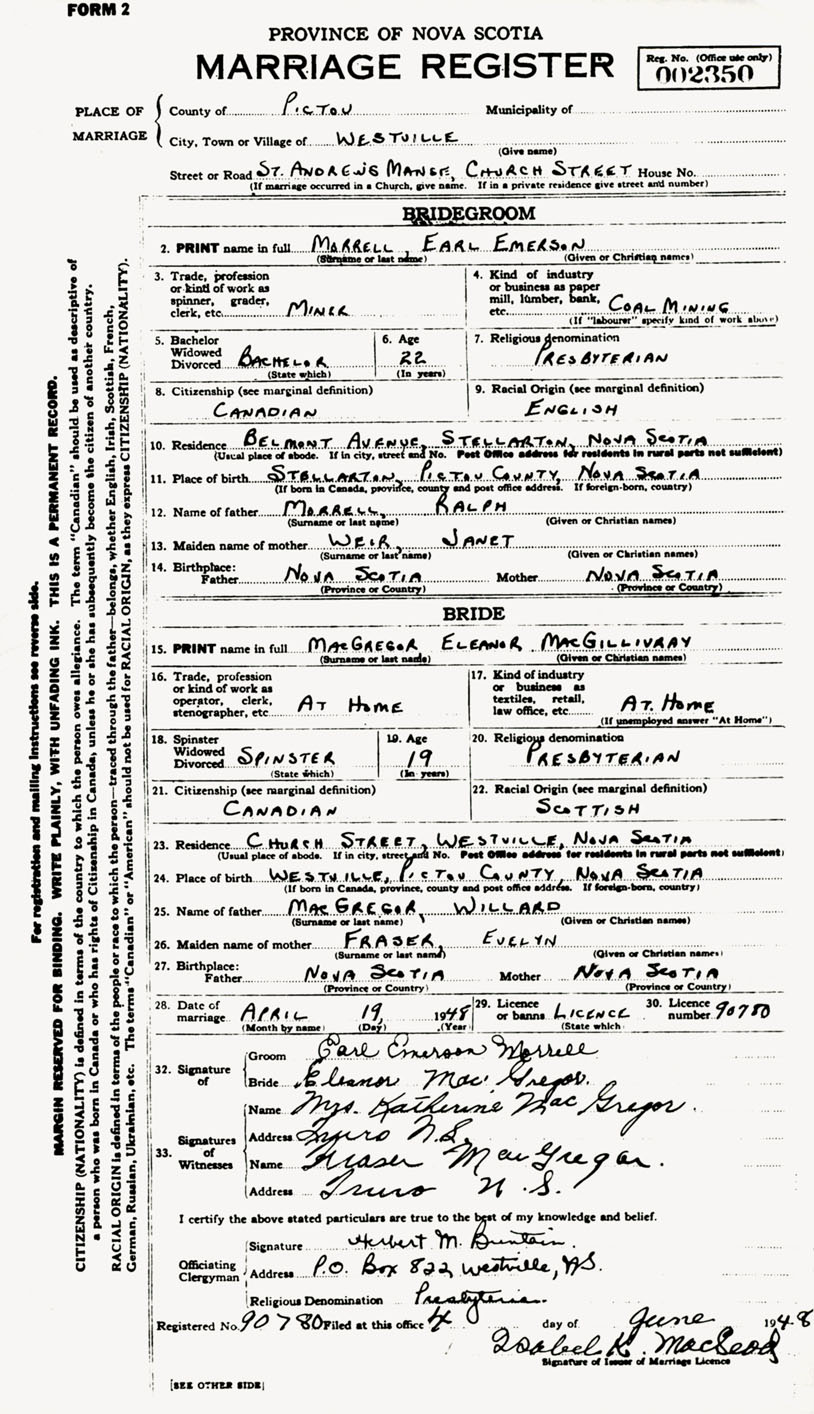 FORM 2
PROVINCE OF NOVA SCOTIA
MARRIAGE REGISTER
Reg. No. (Office use only)
002350
PLACE OF MARRIAGE
County of PICTOU Municipality of
City, Town or Village of WESTVILLE
(Give name)
Street or Road ST. ANDREWS MANSE, CHURCH STREET House No.
(If marriage occurred in a Church, give name. If in a private residence give street and number)
BRIDEGROOM
2. PRINT name in full MORRELL, EARL EMERSON
(Surname or last name) (Given or Christian names)
3. Trade, profession or kind of work as spinner, grader, clerk, etc. MINER
4. Kind of industry or business as paper mill, lumber, bank, etc. COAL MINING
(If "labourer" specify kind of work above)
5. Bachelor Widowed Divorced BACHELOR
(State which)
6. Age 22
(In years)
7. Religious denomination
PRESBYTERIAN
8. Citizenship (see marginal definition)
CANADIAN
9. Racial Origin (see marginal definition)
ENGLISH
10. Residence BELMONT AVENUE, STELLARTON, NOVA SCOTIA
(Usual place of abode. If in city, street and No. Post Office address for residents in rural parts not sufficient)
11. Place of birth STELLARTON, PICTOU COUNTY, NOVA SCOTIA
(If born in Canada, province, county and post office address. If foreign-born, country)
12. Name of father MORRELL, RALPH
(Surname or last name) (Given or Christian names)
13. Maiden name of mother WEIR, JANET
(Surname or last name) (Given or Christian names)
14. Birthplace: Father NOVA SCOTIA Mother NOVA SCOTIA
(Province or Country) (Province or Country)
BRIDE
15. PRINT name in full MACGREGOR ELEANOR MACGILLIVRAY
(Surname or last name) (Given or Christian names)
16. Trade, profession or kind of work as operator, clerk, stenographer, etc. AT HOME
17. Kind of industry or business as textiles, retail, law office, etc. AT HOME
(If unemployed answer "At Home")
18. Spinster Widowed Divorced SPINSTER
(State which)
19. Age 19
(In years)
20. Religious denomination
PRESBYTERIAN
21. Citizenship (see marginal definition)
CANADIAN
22. Racial Origin (see marginal definition)
SCOTTISH
23. Residence CHURCH STREET, WESTVILLE, NOVA SCOTIA
(Usual place of abode. If in city, street and No. Post Office address for residents in rural parts not sufficient)
24. Place of birth WESTVILLE, PICTOU COUNTY, NOVA SCOTIA
(If born in Canada, province, county and post office address. If foreign-born, country)
25. Name of father MACGREGOR, WILLARD
(Surname or last name) (Given or Christian names)
26. Maiden name of mother FRASER, EVELYN
(Surname or last name) (Given or Christian names)
27. Birthplace: Father NOVA SCOTIA Mother NOVA SCOTIA
(Province or Country) (Province or Country)
28. Date of marriage APRIL 19 1948
(Month by name) (Day) (Year)
29. Licence or banns LICENCE
(State which)
30. Licence number 90780
32. Signature of
Groom Earl Emerson Morrell
Bride Eleanor MacGregor.
33. Signatures of Witnesses
Name Mrs. Katherine MacGregor.
Address Truro N.S.
Name Fraser MacGregor.
Address Truro N.S.
I certify the above stated particulars are true to the best of my knowledge and belief.
Officiating Clergyman
Signature Herbert M. Buntain.
Address P.O. Box 822, Westville, NS.
Religious Denomination Presbyterian
Registered No. 90780 Filed at this office 4 day of June 1948
Isabel K. MacLeod
Signature of Issuer of Marriage Licence
[SEE OTHER SIDE]
For registration and mailing instructions see reverse side.
MARGIN RESERVED FOR BINDING. WRITE PLAINLY, WITH UNFADING INK. THIS IS A PERMANENT RECORD.
CITIZENSHIP (NATIONALITY) is defined in terms of the country to which the person owes allegiance. The term "Canadian" should be used as descriptive of
a person who was born in Canada or who has rights of Citizenship in Canada, unless he or she has subsequently become the citizen of another country.
RACIAL ORIGIN is defined in terms of the people or race to which the person—traced through the father—belongs, whether English, Irish, Scottish, French,
German, Russian, Ukrainian, etc. The terms "Canadian" or "American" should not be used for RACIAL ORIGIN, as they express CITIZENSHIP (NATIONALITY).